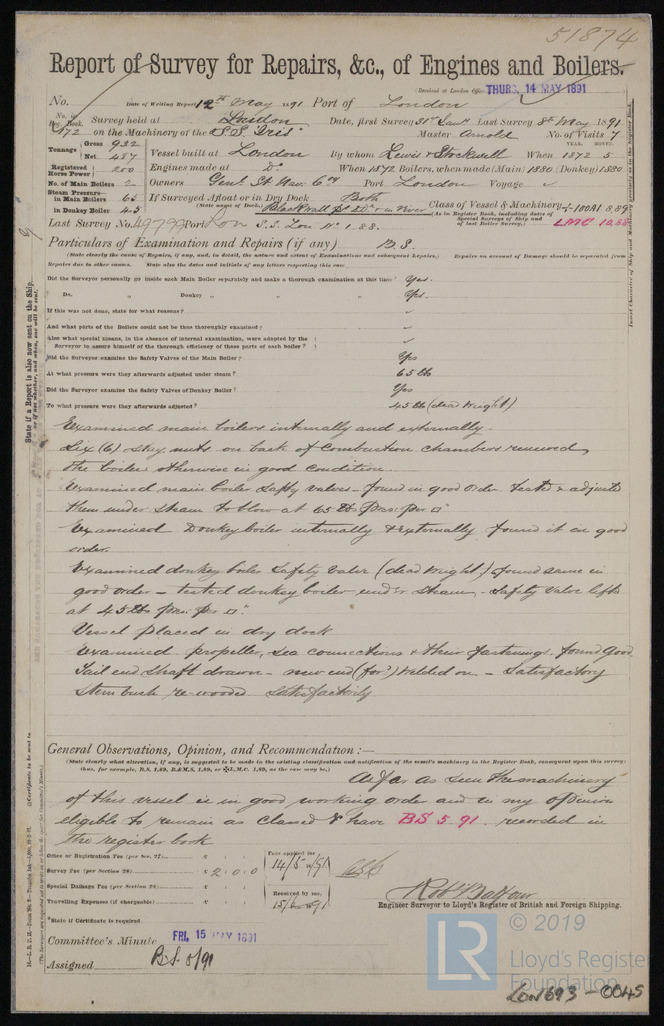 51874
Report of Survey for Repairs, &c., of Engines and Boilers.
(Received at London Office THURS. 14 MAY 1891
No. Date of Writing Report 12th May 1891 Port of London
No. in Reg. Book. Survey held at London Date, first Survey 31st Jany Last Survey 8th May 1891
172 on the Machinery of the "S.S. Iris" Master Arnold No. of Visits 7
Tonnage Gross 932 Net 487 Vessel built at London By whom Lewis & Stockwell When 1872 5
YEAR. MONTH.
Registered Horse Power 200 Engines made at Do. When 1872 Boilers, when made (Main) 1880 (Donkey) 1880
No. of Main Boilers 2 Owners Genl. St. Nav. Coy Port London Voyage
Steam Pressure in Main Boilers 65 If Surveyed Afloat or in Dry Dock Both
in Donkey Boiler 45 (State name of Dock.) Blackwall Pt D.D. & in River Class of Vessel & Machinery 100A1 8,89
(As in Register Book, including dates of Special Surveys of Ship and of last Boiler Survey.) LMC 10,88
Last Survey No. 49799 Port Lon S.S. Lon No. 1.88.
Particulars of Examination and Repairs (if any) B.S.
(State clearly the cause of Repairs, if any, and, in detail, the nature and extent of Examinations and subsequent Repairs. Repairs on account of Damage should be separated from
Repairs due to other causes. State also the dates and initials of any letters respecting this case
Did the Surveyor personally go inside each Main Boiler separately and make a thorough examination at this time? Yes.
Do. " Donkey " " " " Yes.
If this was not done, state for what reasons?
And what parts of the Boilers could not be thus thoroughly examined?
Also what special means, in the absence of internal examination, were adopted by the
Surveyor to assure himself of the thorough efficiency of those parts of each boiler?
Did the Surveyor examine the Safety Valves of the Main Boiler? Yes
At what pressure were they afterwards adjusted under steam? 65 lbs
Did the Surveyor examine the Safety Valves of Donkey Boiler? Yes
To what pressure were they afterwards adjusted? 45 lb (dead weight)
Examined main boilers internally and externally.
Six (6) stay nuts on back of combustion chambers renewed,
the boilers otherwise in good condition.
Examined main boiler safety valves - found in good order tested & adjusted
them under steam to blow at 65 lbs pres. per □".
Examined Donkey boiler internally & externally found it in good
order.
Examined donkey boiler safety valve (dead weight) found same in
good order - tested donkey boiler under steam - safety valve lifts
at 45 lbs pres. per □".
Vessel placed in dry dock
Examined propeller, sea connections & their fastenings, found good
Tail end shaft drawn - new end (for'd) welded on - satisfactory
Stern bush re-wooded satisfactorily
General Observations, Opinion, and Recommendation:—
(State clearly what alteration, if any, is suggested to be made in the existing classification and notification of the vessel's machinery in the Register Book, consequent upon this survey;
thus, for example, B.S. 1,89, B.&M.S. 1,89, or L.M.C. 1,89, as the case may be.)
As far as seen the machinery
of this vessel is in good working order and in my opinion
eligible to remain as classed & have BS 5 91 recorded in
the register book
Office or Registration Fee (per Sec. 27)
Survey Fee (per Section 28) £ 2. 0. 0
Special Damage Fee (per Section 28)
Travelling Expenses (if chargeable)
Fees applied for 14/5 1891
Received by me, 15/5 1891
Robt Balfour
Engineer Surveyor to Lloyd's Register of British and Foreign Shipping.
*State if Certificate is required
Committee's Minute FRI, 15 MAY 1891
Assigned B.S. 5/91
LR © 2019
Lloyd's Register
Foundation
LON693-0045
State if a Report is also now sent on the Ship,